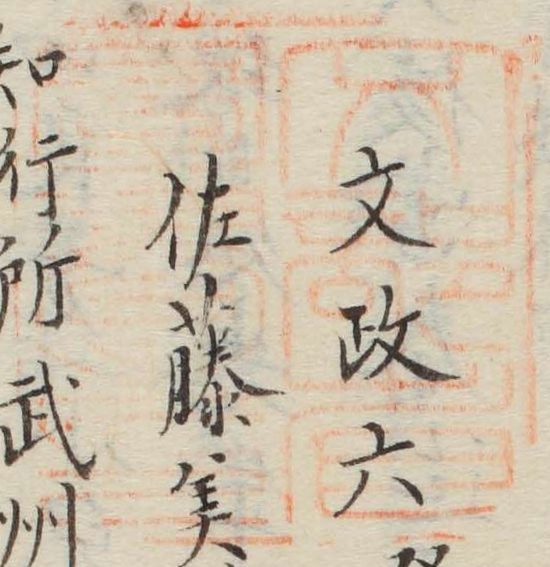 文政六
佐藤美
知行所武州